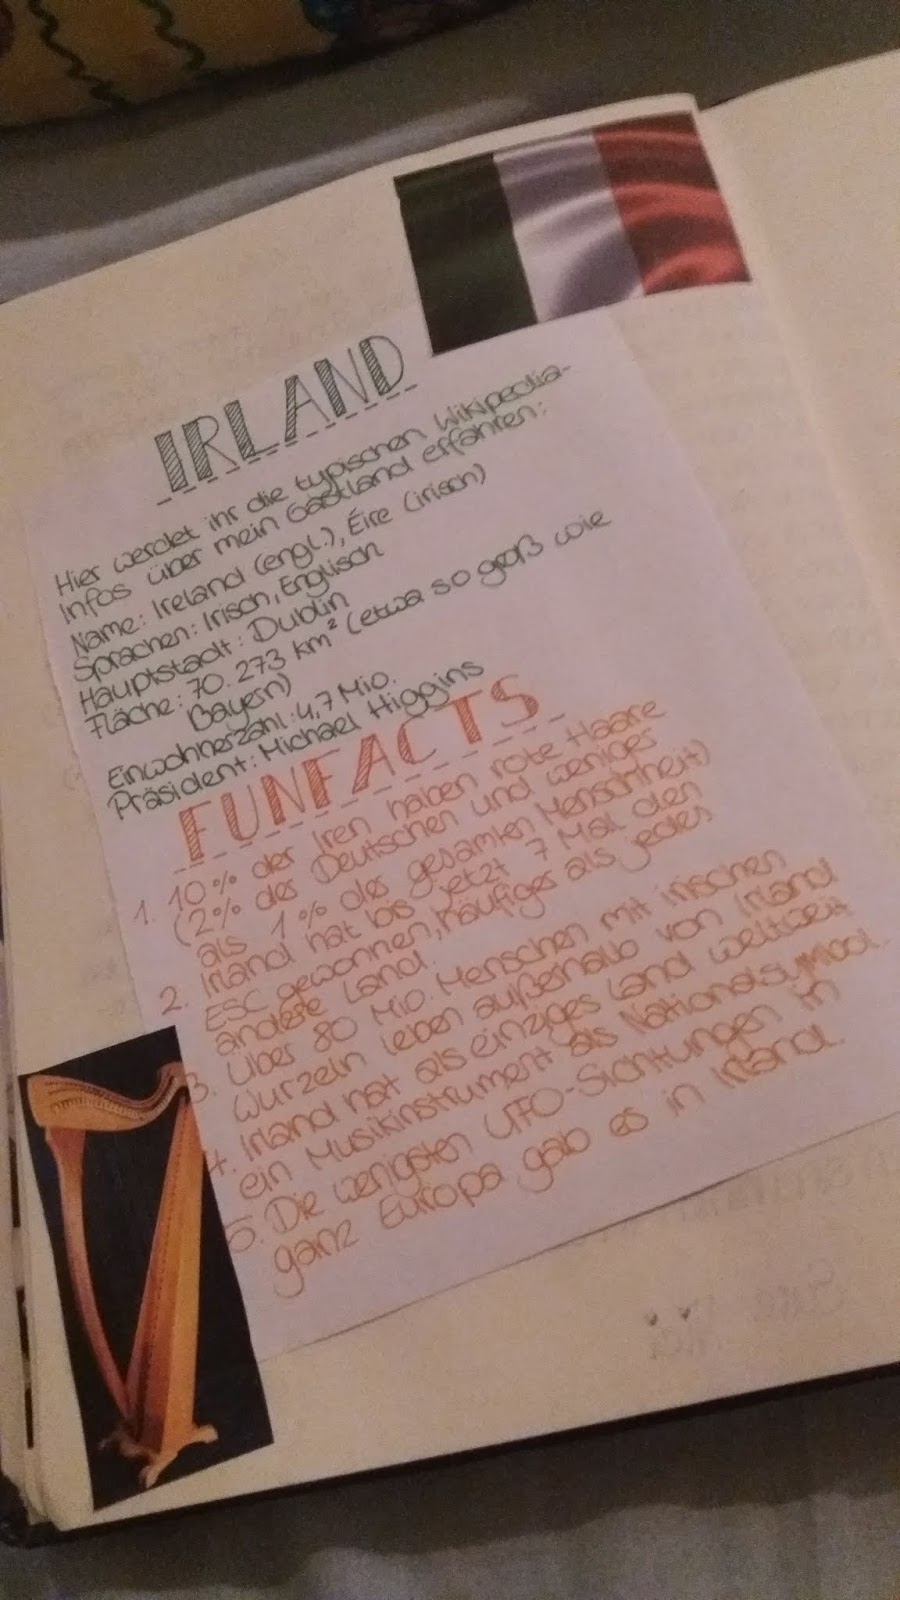 IRLAND
Hier werdet ihr die typischen Wikipedia-
Infos über mein Gastland erfahren:
Name: Ireland (engl.), Éire (irisch)
Sprachen: Irisch, Englisch
Hauptstadt: Dublin
Fläche: 70.273 km² (etwa so groß wie
Bayern)
Einwohnerzahl: 4,7 Mio.
Präsident: Michael Higgins
FUNFACTS
1. 10% der Iren haben rote Haare
(2% der Deutschen und weniger
als 1% der gesamten Menschheit)
2. Irland hat bis jetzt 7 Mal den
ESC gewonnen, häufiger als jedes
andere Land.
3. Über 80 Mio. Menschen mit irischen
Wurzeln leben außerhalb von Irland
4. Irland hat als einziges Land weltweit
ein Musikinstrument als Nationalsymbol.
5. Die wenigsten UFO-Sichtungen in
ganz Europa gab es in Irland.